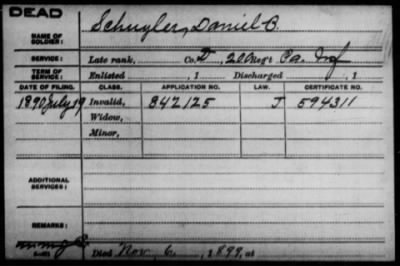 DEAD
NAME OF SOLDIER: Schuyler, Daniel B.
SERVICE: Late rank, Co. D, 20 Regt Pa. Inf
TERM OF SERVICE: Enlisted , 1 Discharged , 1
DATE OF FILING. CLASS. APPLICATION NO. LAW. CERTIFICATE NO.
1890 July 19 Invalid, 842125 J 594311
Widow,
Minor,
ADDITIONAL SERVICES:
REMARKS:
Died Nov. 6, 1899, at